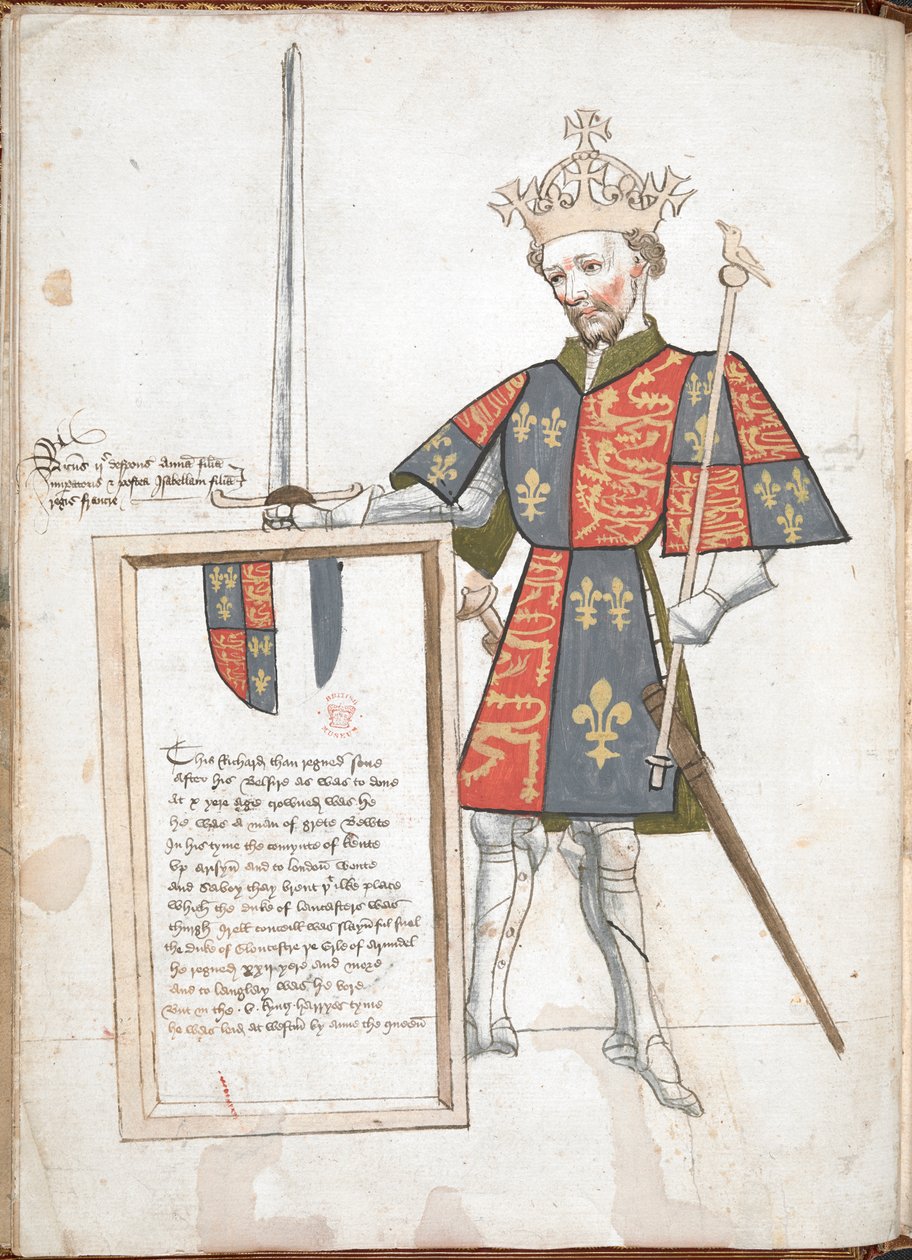 Ricūs ijᵘˢ despons Annā filiā
imp̄atoris & postea Isabellam filiā
regis francie
BRITISH
MUSEUM
This Richard than regned sone
after his Belsire as was to done
At x yere age crowned was he
he was a man of grete Bewte
In his tyme the comynte of kente
vp arysyn and to londoun wente
and Savoy thay brent yᵗ ilke place
which the duke of lancasters was
thurgh counseill was slayn ful
the duke of Gloucestre ye Erle of Arundel
he regned xxij yere and more
And to langley was he bore
But in the .v. kyng harryes tyme
he was leid at westm̄ by anne the quene